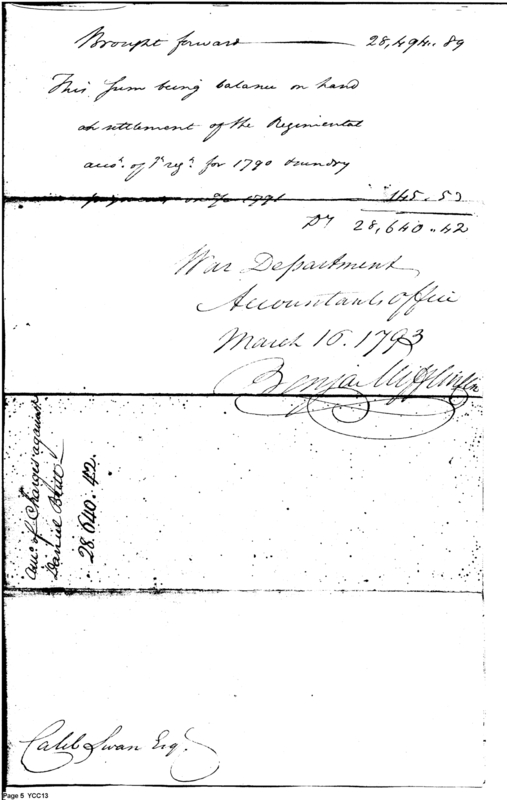 Brought forward — 28,494.89
This sum being balance on hand
at settlement of the Regimental
accts. of 1st regt. for 1790 & sundry
payments on a/c 1791 145.53
Ds 28,640.42
War Department
Accountants office
March 16. 1793
Benja Mifflin
Acct. of Charges against
Daniel Britt
28.640.42.
Caleb Swan Esqr.
Page 5 YCC13